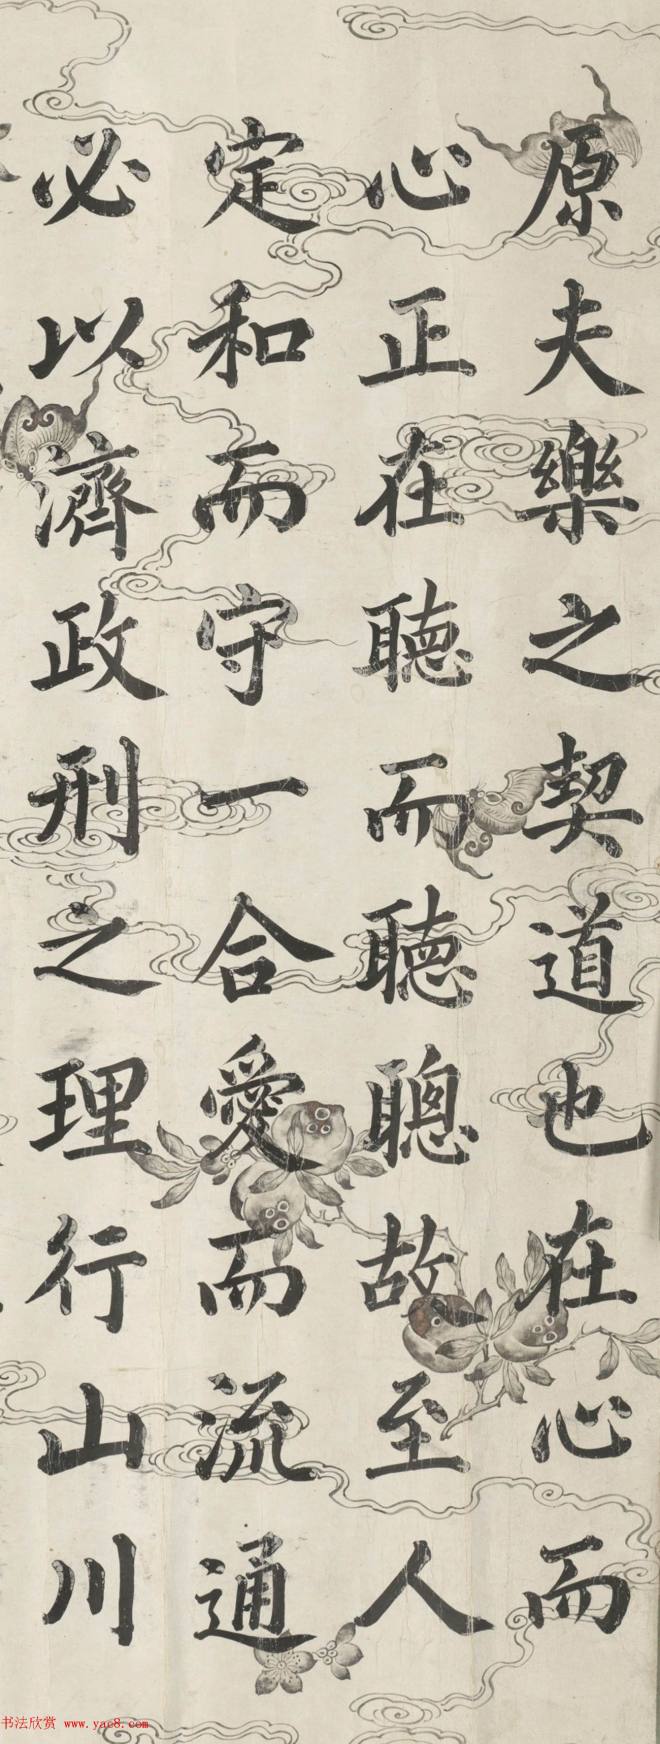 原夫樂之契道也在心而
心正在聴而聴聰故至人
定和而守一合愛而流通
必以濟政刑之理行山川
书法欣赏 www.yac8.com